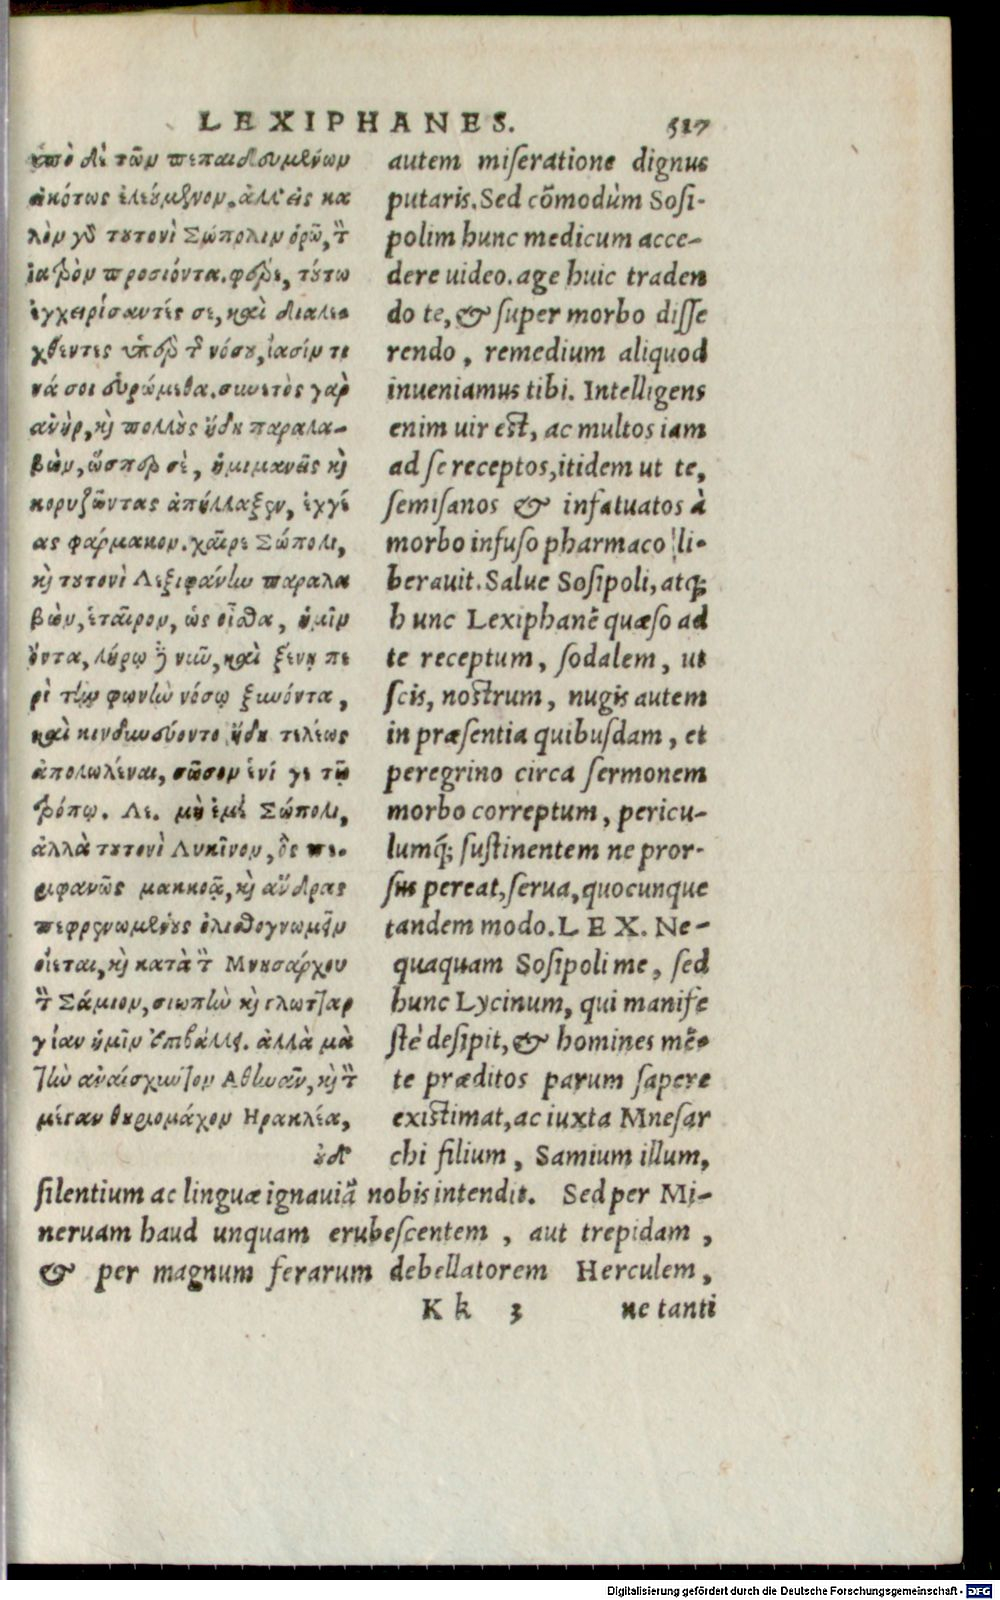 LEXIPHANES. 517
ὑπὸ δὲ τῶν πεπαιδευμένων
εἰκότως ἐλεούμενον. ἀλλ' εἰς κα
λὸν γὸ τουτονὶ Σώπολιν ὁρῶ, τὸν
ἰατρὸν προσιόντα. φέρε, τούτῳ
ἐγχειρίσαντές σε, καὶ διαλε
χθέντες ὑπὲρ τῆς νόσου, ἴασίν τι
νά σοι εὑρώμεθα. συνετὸς γὰρ
ἀνὴρ, καὶ πολλοὺς ἤδη παραλα-
βὼν, ὥσπερ σὲ, ἡμιμανεῖς καὶ
κορυζῶντας ἀπήλλαξεν, ἐγχέ
ας φάρμακον. χαῖρε Σώπολι,
καὶ τουτονὶ Λεξιφάνην παραλα
βὼν, ἑταῖρον, ὡς οἶσθα, ἡμῖν
ὄντα, λήρῳ δὲ νῦν, καὶ ξένῃ πε
ρὶ τὴν φωνὴν νόσῳ ξυνόντα,
καὶ κινδυνεύοντα ἤδη τελέως
ἀπολωλέναι, σῶσον ἑνί γε τῷ
τρόπῳ. Λε. μὴ ἐμὲ Σώπολι,
ἀλλὰ τουτονὶ Λυκῖνον, ὃς πε-
ριφανῶς μακκοᾷ, καὶ ἄνδρας
πεφρενωμένους ὀλισθογνωμεῖν
οἴεται, καὶ κατὰ τὸν Μνησάρχου
τὸν Σάμιον, σιωπὴν καὶ γλωτταρ
γίαν ἡμῖν ἐπιβάλλει. ἀλλὰ μὰ
τὴν ἀναίσχυντον Ἀθηνᾶν, καὶ τὸν
μέγαν θηριομάχον Ἡρακλέα,
οὐδ'
autem miseratione dignus
putaris. Sed cōmodùm Sosi-
polim hunc medicum acce-
dere uideo. age huic traden
do te, & super morbo disse
rendo, remedium aliquod
inueniamus tibi. Intelligens
enim uir est, ac multos iam
ad se receptos, itidem ut te,
semisanos & infatuatos à
morbo infuso pharmaco li-
berauit. Salue Sosipoli, atq;
hunc Lexiphanē quæso ad
te receptum, sodalem, ut
scis, nostrum, nugis autem
in præsentia quibusdam, et
peregrino circa sermonem
morbo correptum, pericu-
lumq́; sustinentem ne pror-
sus pereat, serua, quocunque
tandem modo. LEX. Ne-
quaquam Sosipoli me, sed
hunc Lycinum, qui manife
stè desipit, & homines mē-
te præditos parum sapere
existimat, ac iuxta Mnesar
chi filium, Samium illum,
silentium ac linguæ ignauiā nobis intendit. Sed per Mi-
neruam haud unquam erubescentem, aut trepidam,
& per magnum ferarum debellatorem Herculem,
Kk 3 ne tanti
Digitalisierung gefördert durch die Deutsche Forschungsgemeinschaft - DFG